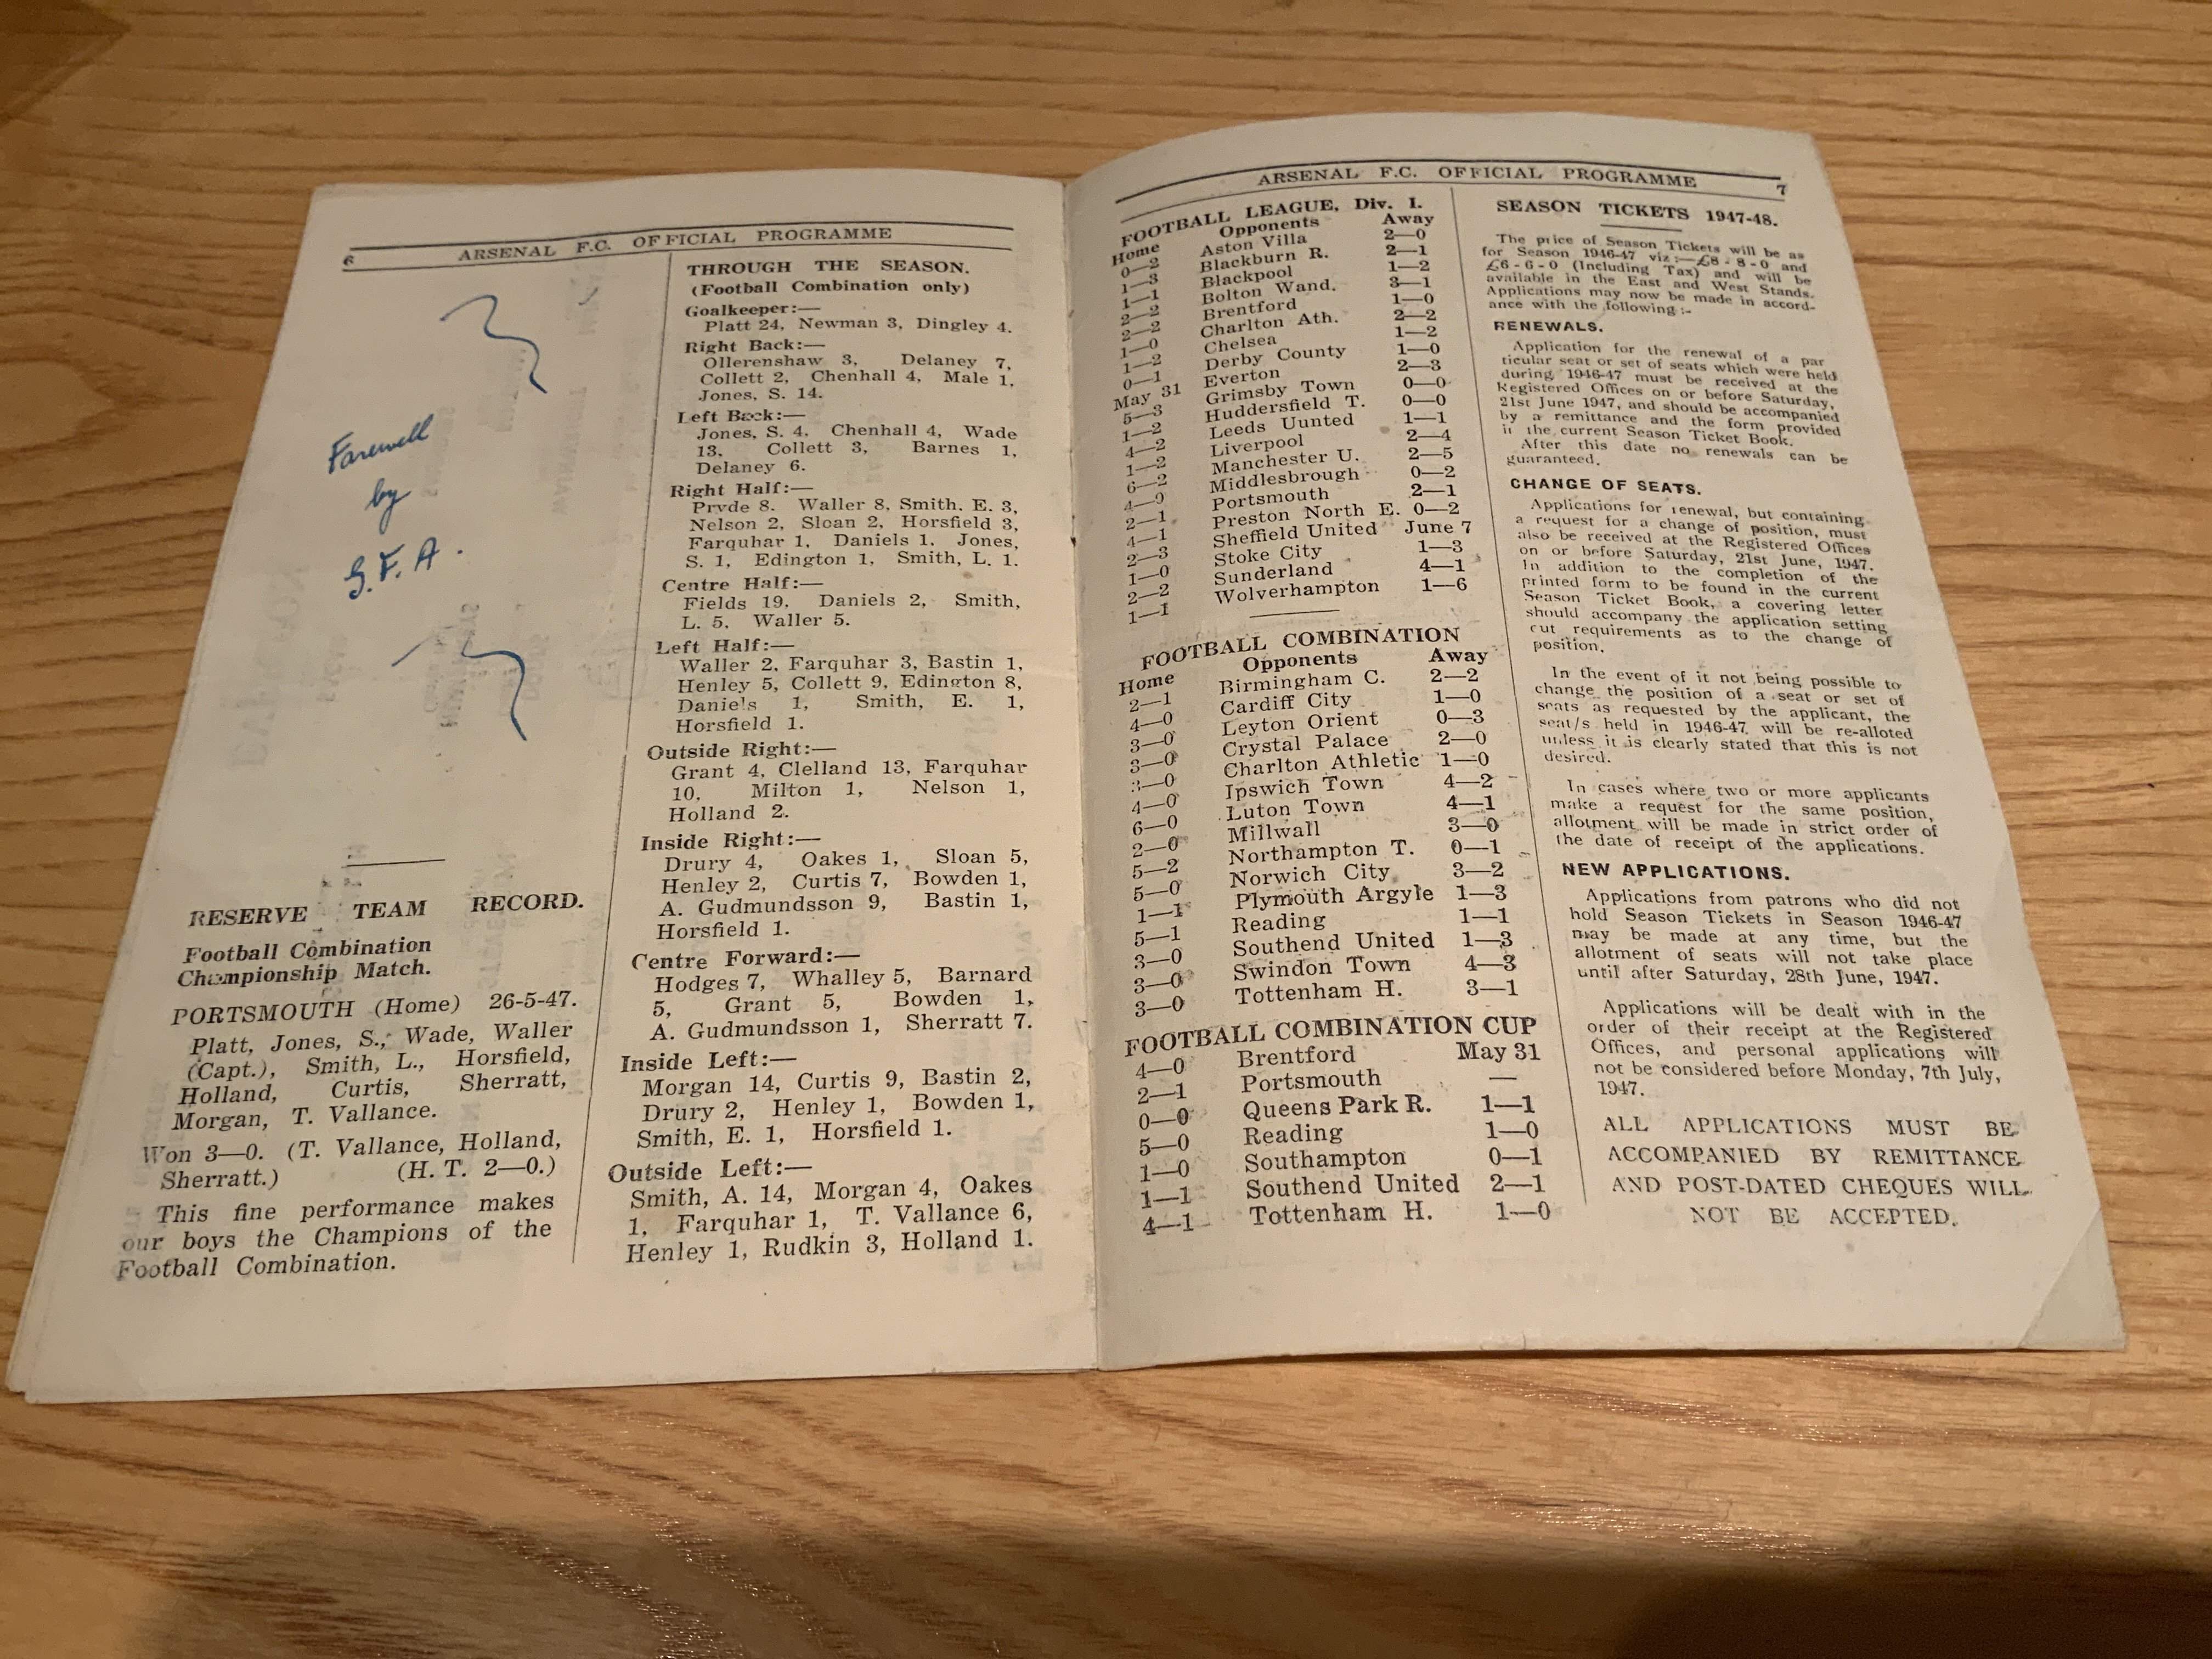 6
ARSENAL F.C. OFFICIAL PROGRAMME
Farewell
by
G.F.A.
RESERVE TEAM RECORD.
Football Combination
Championship Match.
PORTSMOUTH (Home) 26-5-47.
Platt, Jones, S., Wade, Waller
(Capt.), Smith, L., Horsfield,
Holland, Curtis, Sherratt,
Morgan, T. Vallance.
Won 3—0. (T. Vallance, Holland,
Sherratt.) (H. T. 2—0.)
This fine performance makes
our boys the Champions of the
Football Combination.
THROUGH THE SEASON.
(Football Combination only)
Goalkeeper:—
Platt 24, Newman 3, Dingley 4.
Right Back:—
Ollerenshaw 3, Delaney 7,
Collett 2, Chenhall 4, Male 1,
Jones, S. 14.
Left Back:—
Jones, S. 4, Chenhall 4, Wade
13, Collett 3, Barnes 1,
Delaney 6.
Right Half:—
Pryde 8. Waller 8, Smith. E. 3,
Nelson 2, Sloan 2, Horsfield 3,
Farquhar 1, Daniels 1, Jones,
S. 1, Edington 1, Smith, L. 1.
Centre Half:—
Fields 19, Daniels 2, Smith,
L. 5, Waller 5.
Left Half:—
Waller 2, Farquhar 3, Bastin 1,
Henley 5, Collett 9, Edington 8,
Daniels 1, Smith, E. 1,
Horsfield 1.
Outside Right:—
Grant 4, Clelland 13, Farquhar
10, Milton 1, Nelson 1,
Holland 2.
Inside Right:—
Drury 4, Oakes 1, Sloan 5,
Henley 2, Curtis 7, Bowden 1,
A. Gudmundsson 9, Bastin 1,
Horsfield 1.
Centre Forward:—
Hodges 7, Whalley 5, Barnard
5, Grant 5, Bowden 1,
A. Gudmundsson 1, Sherratt 7.
Inside Left:—
Morgan 14, Curtis 9, Bastin 2,
Drury 2, Henley 1, Bowden 1,
Smith, E. 1, Horsfield 1.
Outside Left:—
Smith, A. 14, Morgan 4, Oakes
1, Farquhar 1, T. Vallance 6,
Henley 1, Rudkin 3, Holland 1.
ARSENAL F.C. OFFICIAL PROGRAMME
7
FOOTBALL LEAGUE, Div. I.
Home Opponents Away
0—2 Aston Villa 2—0
1—3 Blackburn R. 2—1
1—1 Blackpool 1—2
2—2 Bolton Wand. 3—1
2—2 Brentford 1—0
1—0 Charlton Ath. 2—2
1—2 Chelsea 1—2
0—1 Derby County 1—0
May 31 Everton 2—3
5—3 Grimsby Town 0—0
1—2 Huddersfield T. 0—0
4—2 Leeds Uunted 1—1
1—2 Liverpool 2—4
6—2 Manchester U. 2—5
4—0 Middlesbrough 0—2
2—1 Portsmouth 2—1
4—1 Preston North E. 0—2
2—3 Sheffield United June 7
1—0 Stoke City 1—3
2—2 Sunderland 4—1
1—1 Wolverhampton 1—6
FOOTBALL COMBINATION
Home Opponents Away
2—1 Birmingham C. 2—2
4—0 Cardiff City 1—0
3—0 Leyton Orient 0—3
3—0 Crystal Palace 2—0
3—0 Charlton Athletic 1—0
4—0 Ipswich Town 4—2
6—0 Luton Town 4—1
2—0 Millwall 3—0
5—2 Northampton T. 0—1
5—0 Norwich City 3—2
1—1 Plymouth Argyle 1—3
5—1 Reading 1—1
3—0 Southend United 1—3
3—0 Swindon Town 4—3
3—0 Tottenham H. 3—1
FOOTBALL COMBINATION CUP
4—0 Brentford May 31
2—1 Portsmouth —
0—0 Queens Park R. 1—1
5—0 Reading 1—0
1—0 Southampton 0—1
1—1 Southend United 2—1
4—1 Tottenham H. 1—0
SEASON TICKETS 1947-48.
The price of Season Tickets will be as
for Season 1946-47 viz :—£8 - 8 - 0 and
£6 - 6 - 0 (Including Tax) and will be
available in the East and West Stands.
Applications may now be made in accord-
ance with the following :-
RENEWALS.
Application for the renewal of a par
ticular seat or set of seats which were held
during 1946-47 must be received at the
Registered Offices on or before Saturday,
21st June 1947, and should be accompanied
by a remittance and the form provided
in the current Season Ticket Book.
After this date no renewals can be
guaranteed.
CHANGE OF SEATS.
Applications for renewal, but containing
a request for a change of position, must
also be received at the Registered Offices
on or before Saturday, 21st June, 1947.
In addition to the completion of the
printed form to be found in the current
Season Ticket Book, a covering letter
should accompany the application setting
out requirements as to the change of
position.
In the event of it not being possible to
change the position of a seat or set of
seats as requested by the applicant, the
seat/s held in 1946-47 will be re-alloted
unless it is clearly stated that this is not
desired.
In cases where two or more applicants
make a request for the same position,
allotment will be made in strict order of
the date of receipt of the applications.
NEW APPLICATIONS.
Applications from patrons who did not
hold Season Tickets in Season 1946-47
may be made at any time, but the
allotment of seats will not take place
until after Saturday, 28th June, 1947.
Applications will be dealt with in the
order of their receipt at the Registered
Offices, and personal applications will
not be considered before Monday, 7th July,
1947.
ALL APPLICATIONS MUST BE
ACCOMPANIED BY REMITTANCE
AND POST-DATED CHEQUES WILL
NOT BE ACCEPTED.